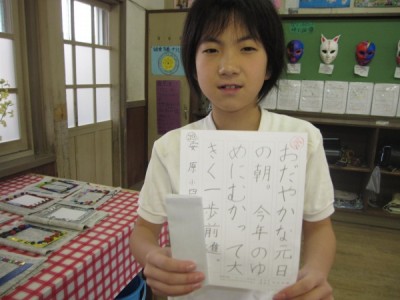 おだやかな元日
の朝。今年のゆ
めにむかって大
きく一歩前進。